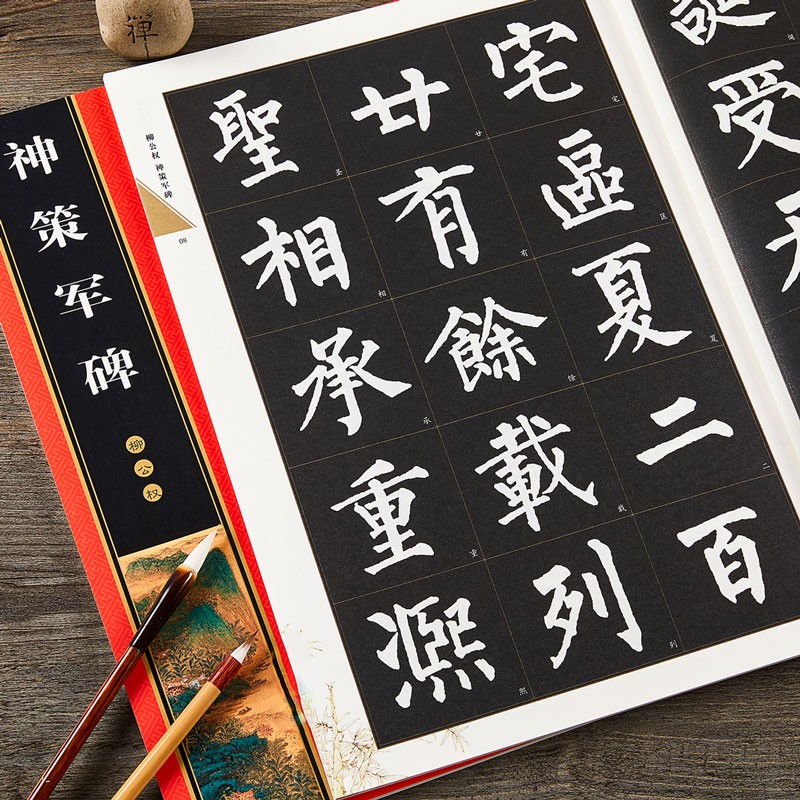 禅
神策军碑
柳公权
柳公权 神策军碑
08
誕
诞
受
宅
宅
區
区
夏
夏
二
二
百
廿
廿
有
有
餘
馀
載
载
列
列
聖
圣
相
相
承
承
重
重
凞
熙